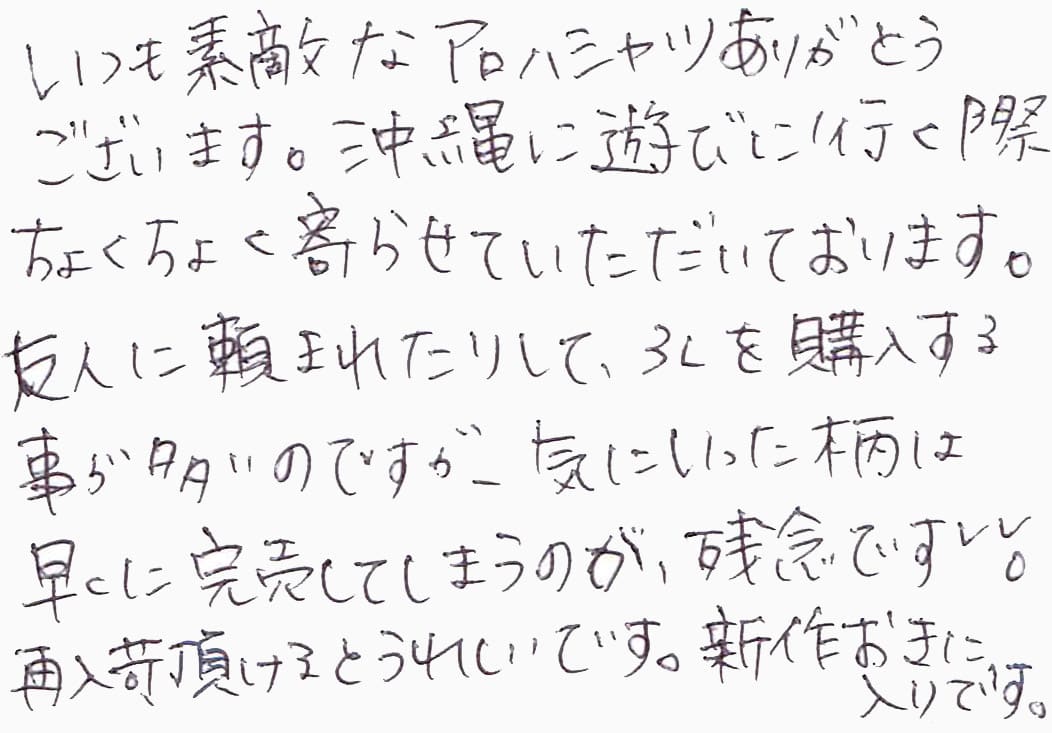 いつも素敵なアロハシャツありがとう
ございます。沖縄に遊びに行く際
ちょくちょく寄らせていただいております。
友人に頼まれたりして、3Lを購入する
事が多いのですが、気にいった柄は
早くに完売してしまうのが、残念です。
再入荷頂けるとうれしいです。新作おきに
入りです。